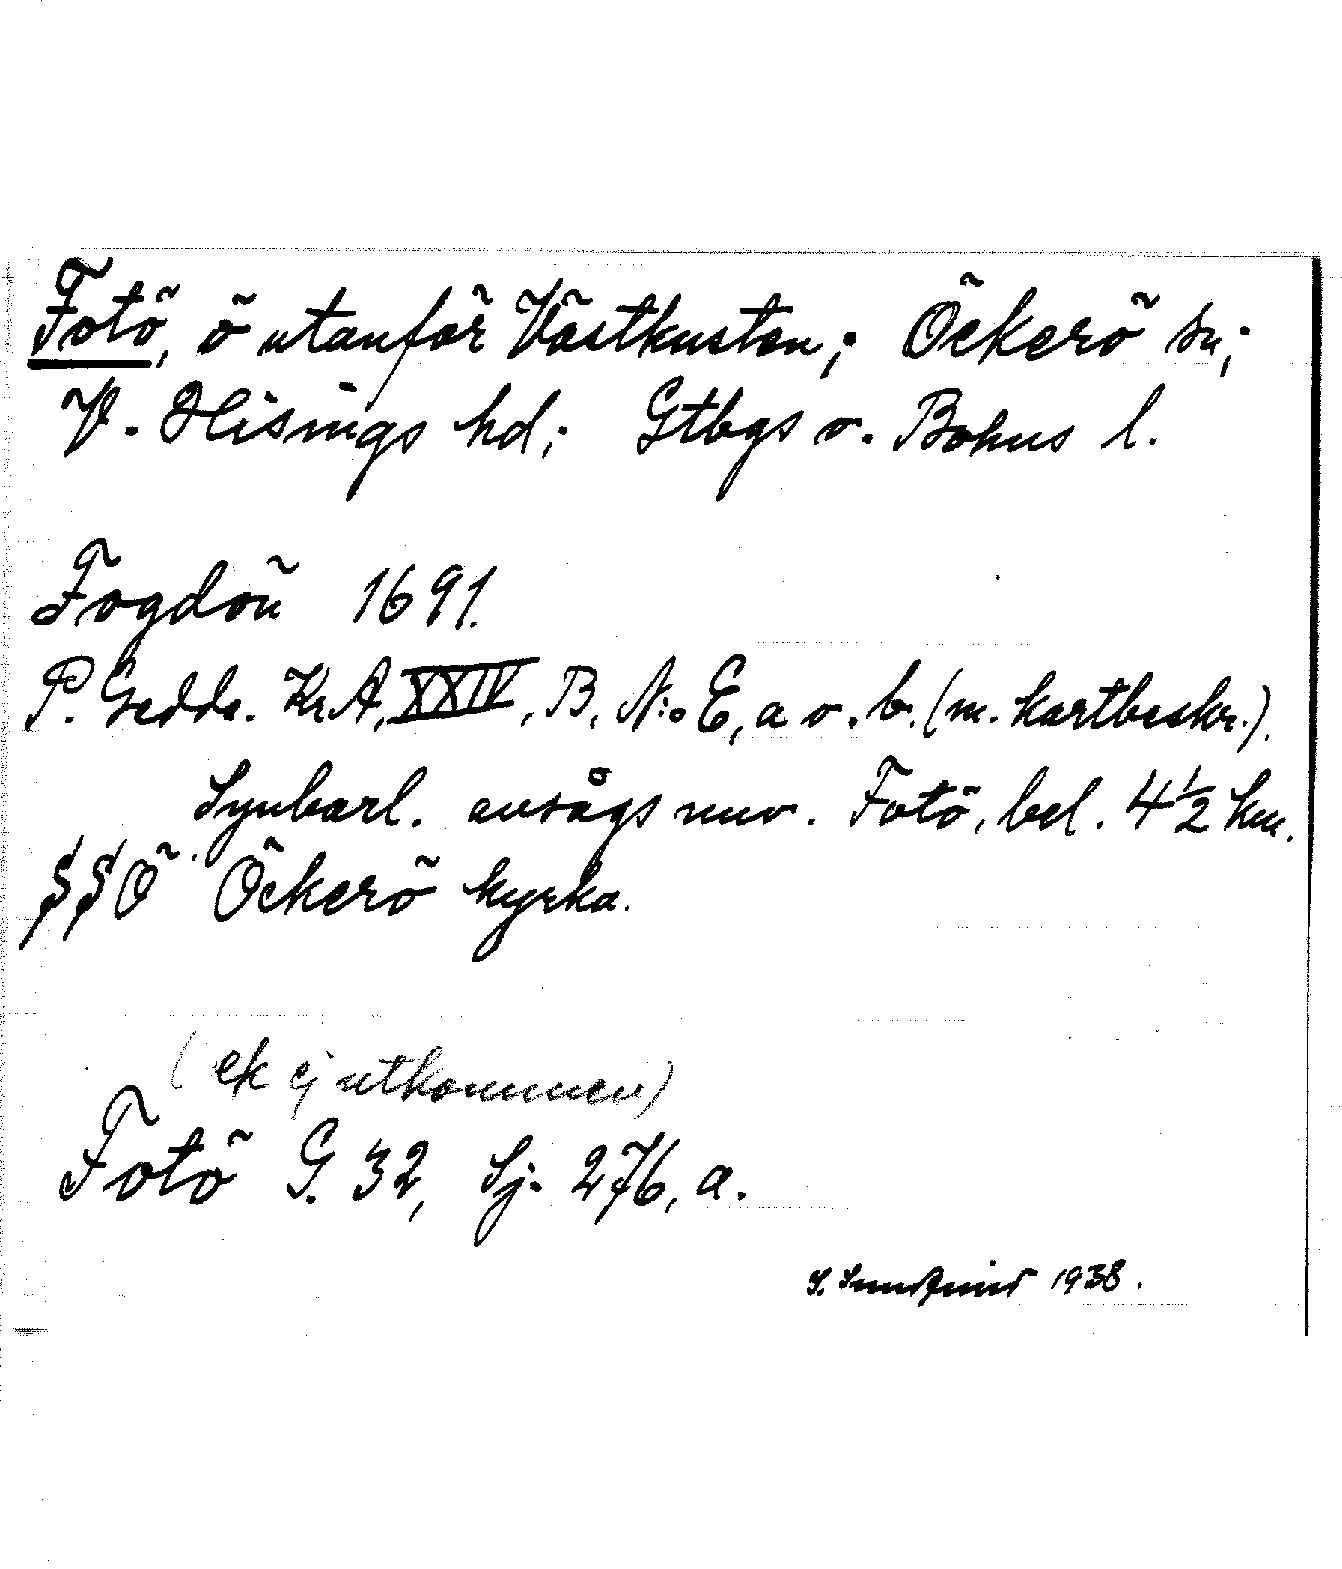 Fotö, ö utanför Västkusten; Öckerö sn;
V. Hisings hd; Gtbgs o. Bohus l.
Fogdöñ 1691.
P. Gedda. Kr.A. XXIV, B, N:o E, a o. b. (m. kartbeskr.).
Synbarl. avsågs nuv. Fotö, bel. 4 1/2 km.
SSÖ Öckerö kyrka.
(ek ej utkommen)
Fotö G. 32, Sj. 276, a.
S. 1938.